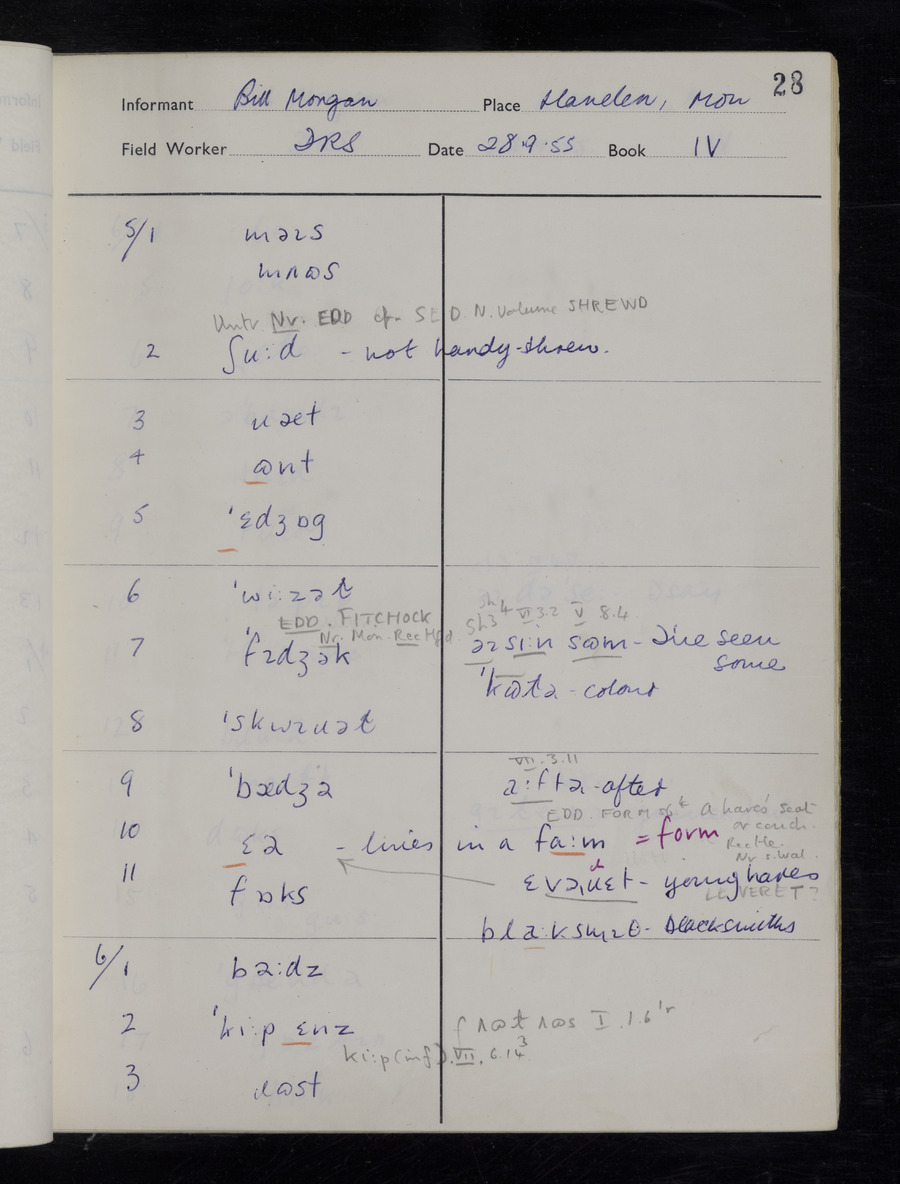 28
Informant Bill Morgan Place Llanelen, Mon
Field Worker DRS Date 28.9.55 Book IV
5/1 məɩs
mʌʊs
Nr. EDD cp. SED N. Volume SHREWD
2 ʃu:d - not handy-shrew.
3 ɹæt
4 ænt
5 'ɛdʒɒg
6 'wi:zət
EDD. FITCHOCK
Nr. Mon. Rec Hfd
7 'fɪdʒək
Sh4 VI 3.2 V 8.4
əɩ sɩ:n sʊm - I've seen
some
'kʊlə - colour
8 'skwɪɹəl
9 'bædʒə
VII.3.11
a:ftə - after
EDD. FORM sb. A hares' seat
or couch.
10 ɛə - lives in a fa:m = form
11 fɒks
ɛvəɹɛt - young hares
LEVERET?
bla:ksmɪθ - blacksmiths
6/1 bə:dz
2 'ki:p ɛnz
I.1.6
ki:p (inf) VII.6.14 3
3 ɹʊst